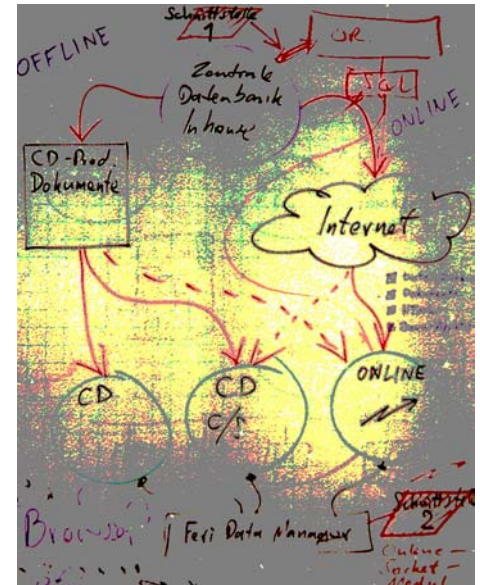 Schnittstelle
1
OFFLINE
Zentrale
Datenbank
Inhouse
SQL
ONLINE
CD-Prod.
Dokumente
Internet
CD
CD
ONLINE
Browser
Feri Data Manager
Schnittstelle
2
Online-
Socket-
Modul